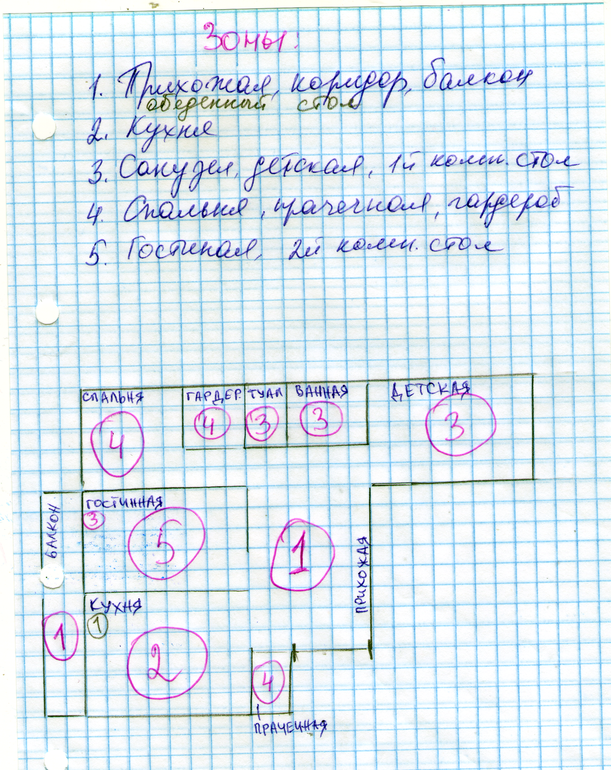 Зоны:
1. Прихожая, коридор, балкон
обеденный стол
2. Кухня
3. Санузел, детская, 1й комп. стол
4. Спальня, прачечная, гардероб
5. Гостиная, 2й комп. стол
СПАЛЬНЯ ГАРДЕР ТУАЛ ВАННАЯ ДЕТСКАЯ
4 4 3 3 3
БАЛКОН ГОСТИННАЯ
3 5 1 ПРИХОЖАЯ
КУХНЯ
1 1 2
4
ПРАЧЕЧНАЯ